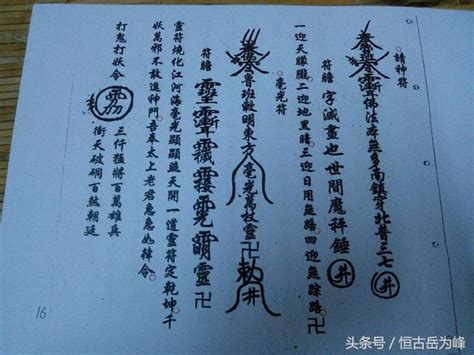 請神符
佛法本無多南鎮守北普三七 井
符膽 字減畫也世間魔秤錘 井
一迎天朦朧。二迎地黑暗。三迎日月無路。四迎無蹤路。卍
毫光符
魯班敕明東方毫光萬枝靈卍勅井
符膽 靈 卍
靈符燒化江河海毫光顯顯照天開一道靈符定乾坤千
妖萬邪不敢進神門。吾奉太上老君急急如律令。
打鬼打妖令
三仟猛將百萬雄兵
衝天破洞百煞朝廷
16
头条号 / 恒古岳为峰